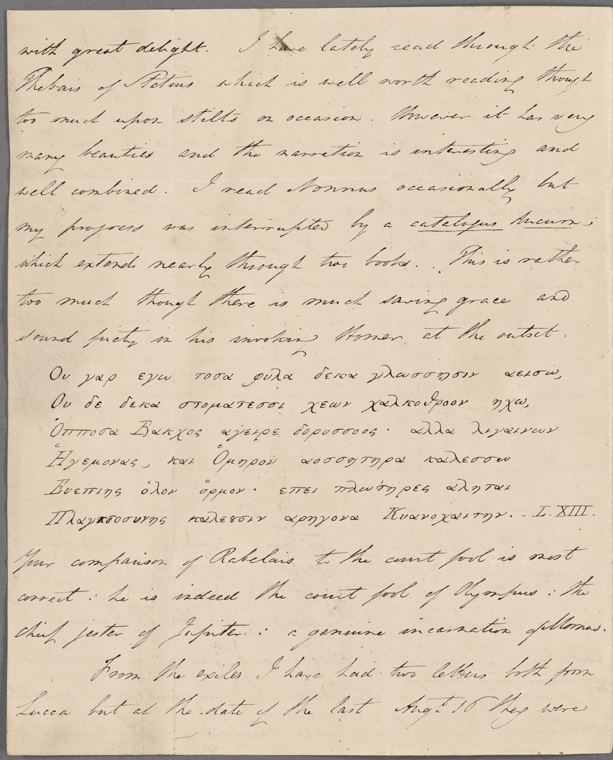 with great delight. I have lately read through the
Thebais of Statius which is well worth reading though
too much upon stilts on occasion. However it has very
many beauties and the narration is interesting and
well combined. I read Nonnus occasionally but
my progress was interrupted by a catalogus ducum;
which extends nearly through two books. This is rather
too much though there is much saving grace and
sound piety in his invoking Homer at the outset.
Ου γαρ εγω τοσα φυλα δεκα γλωσσησιν αεισω,
Ου δε δεκα στοματεσσι χεων χαλκοθροον ηχω,
Ὁπποσα Βακχος αγειρε δορυσσοος· αλλα λιγαινων
Ἡγεμονας, και Ὁμηρον αοσσητηρα καλεσσω
Ευεπιης ὁλον ὁρμον· επει πλωτηρες αληται
Πλαγκτοσυνης καλεουσιν αρηγονα Κυανοχαιτην. _ L. XIII.
Your comparison of Rabelais to the court fool is most
correct: he is indeed the court fool of Olympus: the
chief jester of Jupiter: a genuine incarnation of Momus.
From the exiles I have had two letters both from
Lucca but at the date of the last Augt 16 they were